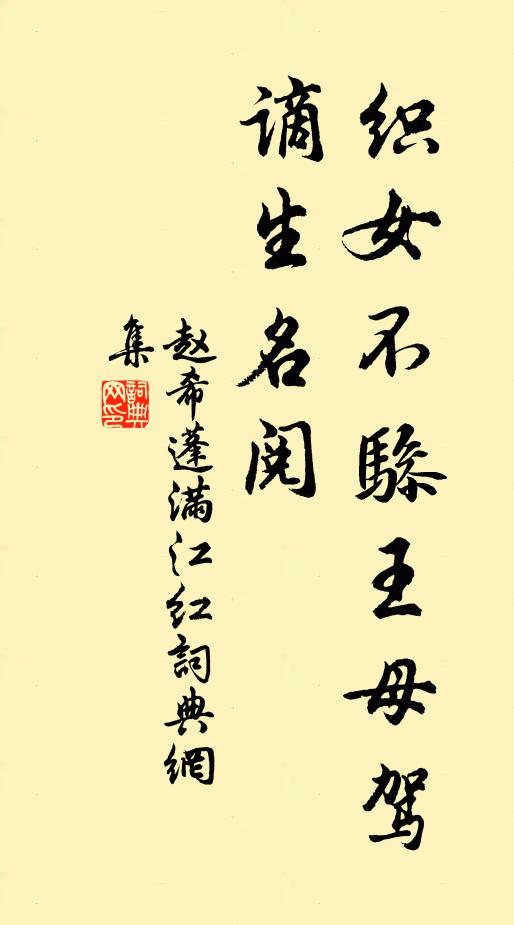 织女不驂王母驾
谪生名阅
赵希蓬满江红詞典網
集
詞典网印